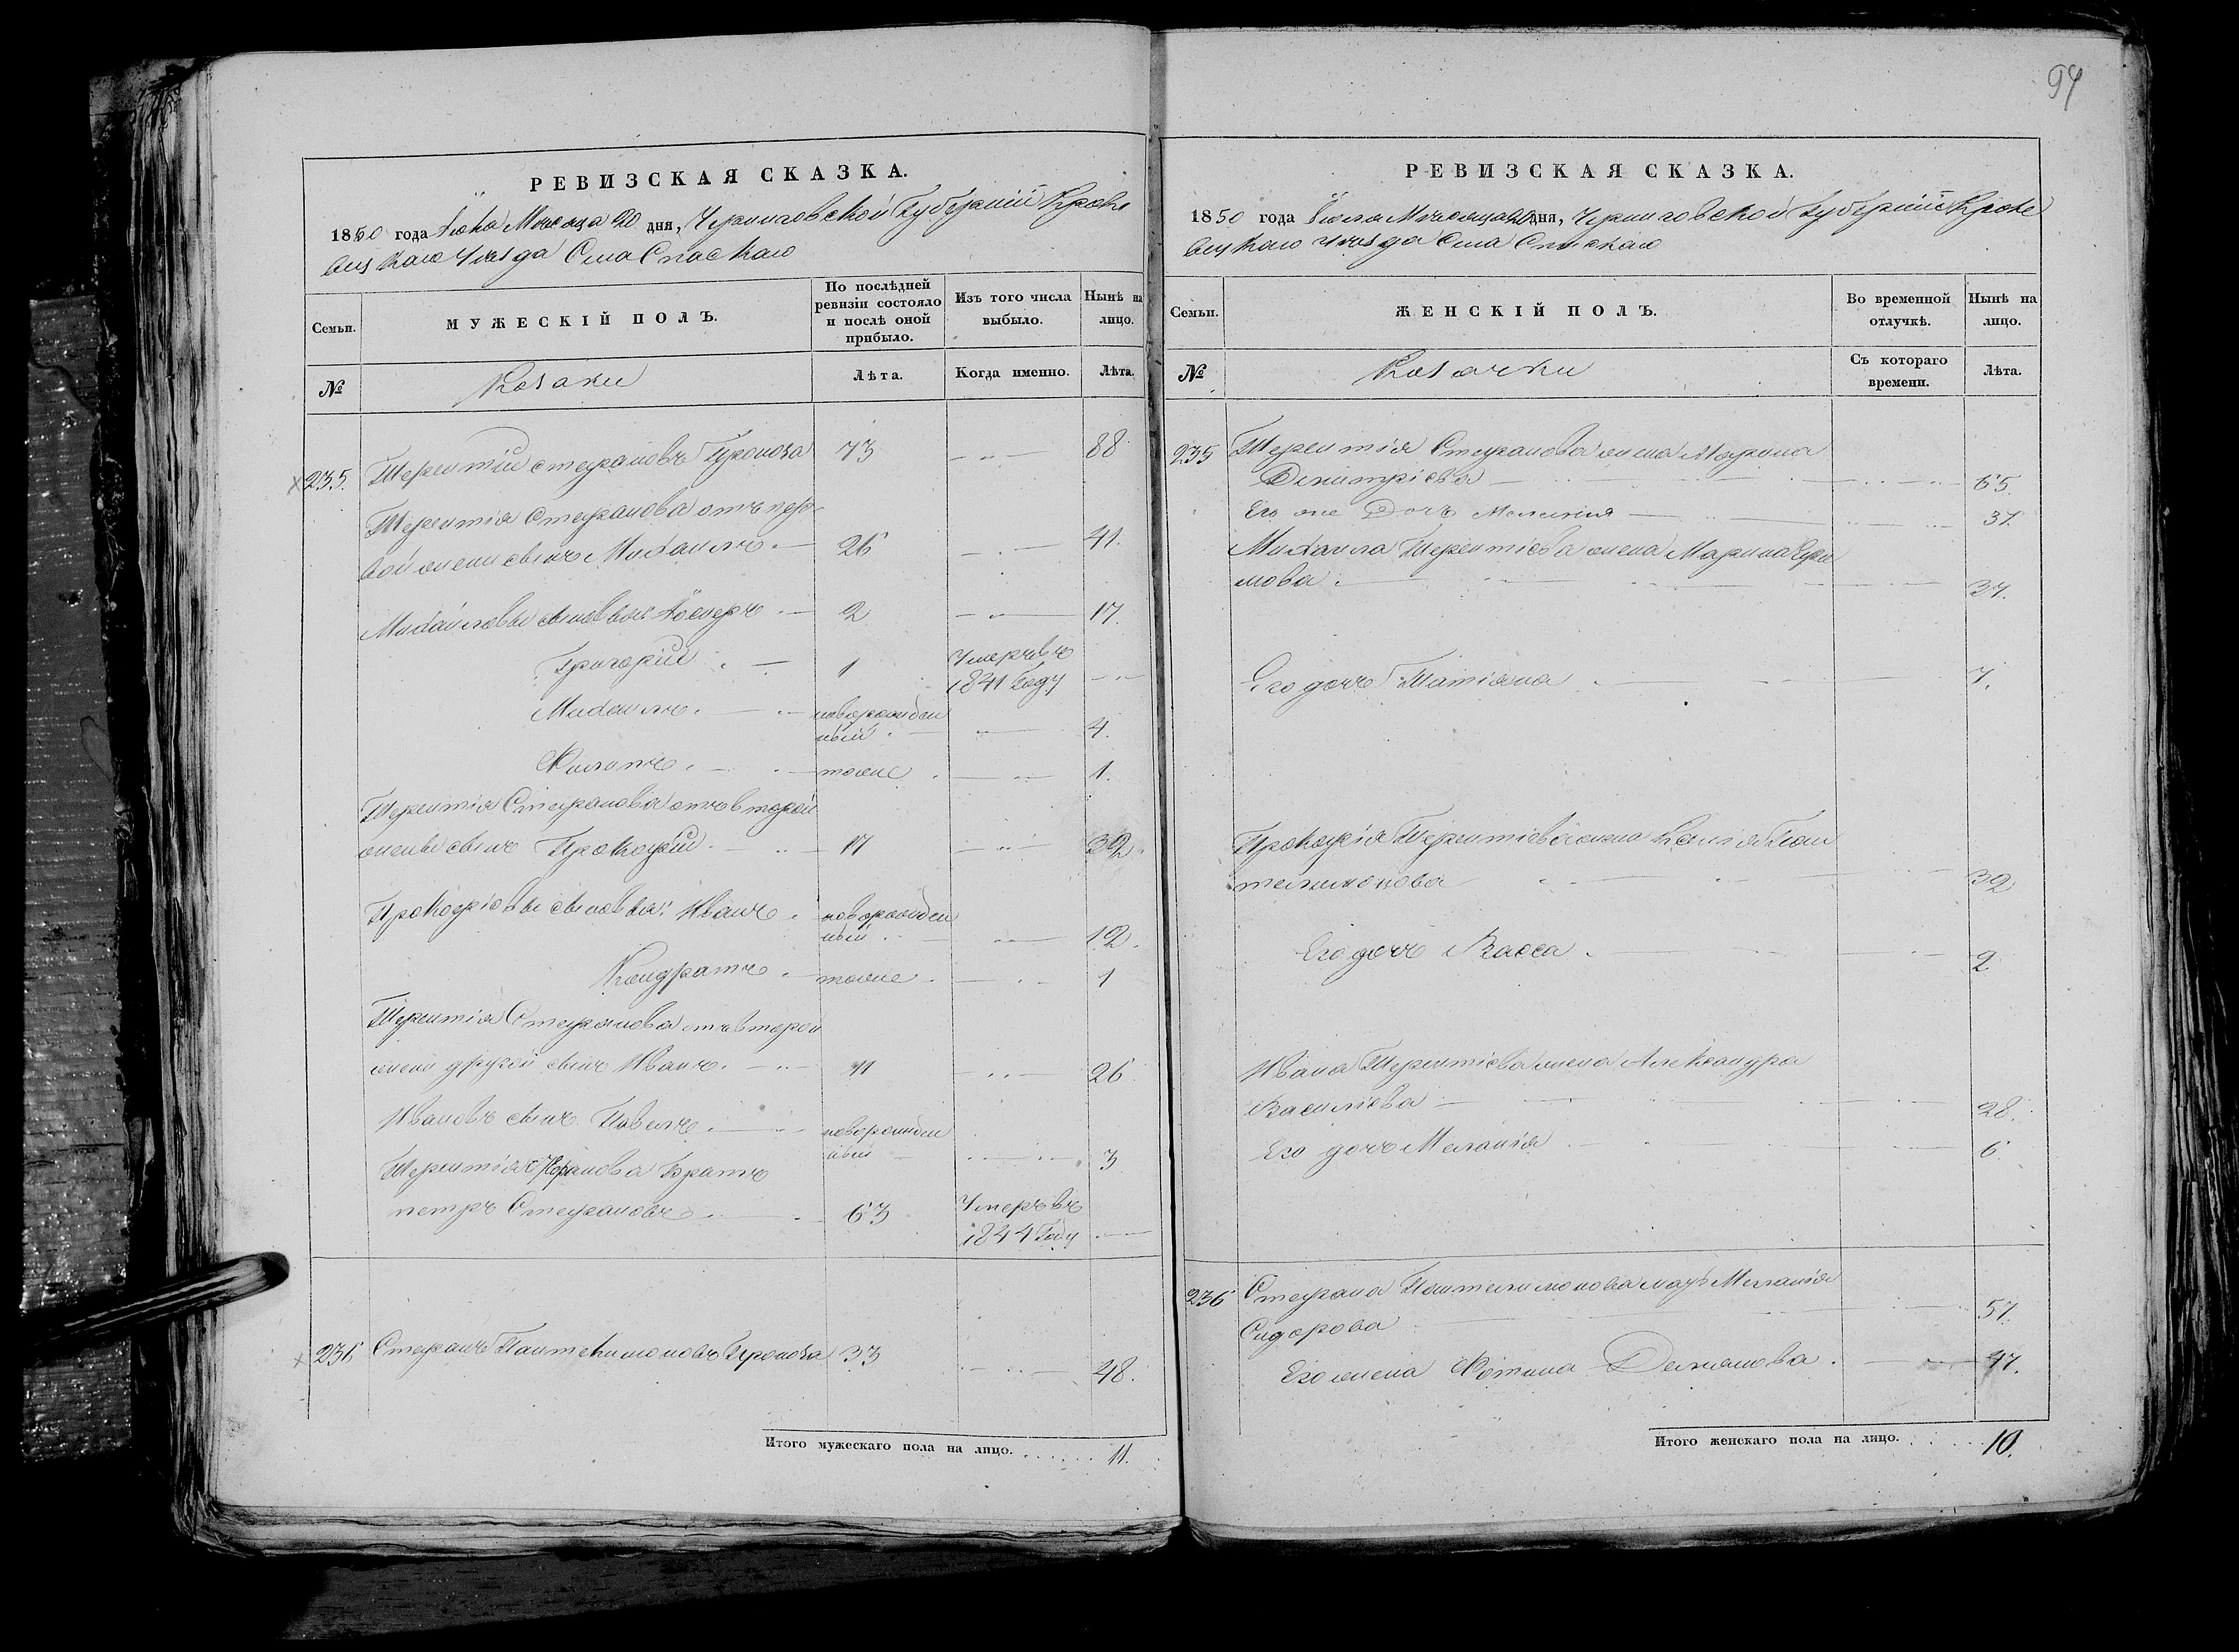 94
РЕВИЗСКАЯ СКАЗКА.
1850 года Июля Месяца 20 дня, Черниговской Губернии Кроле
вецкаго Уезда Села Спаскаго
Семьи.
МУЖЕСКІЙ ПОЛЪ.
По послѣдней
ревизіи состояло
и послѣ оной
прибыло.
Изъ того числа
выбыло.
Нынѣ на
лицо.
№
Козаки
Лѣта.
Когда именно.
Лѣта.
235. Терентий Стефановъ Проноза 73 88
Терентия Стефанова отъ пер
вой жени сынъ Михаилъ 26 41.
Михайловы сыновья: 2 17.
Григорий 1 Умеръ въ
1841 Году
Михаилъ новорожден
ный 4.
Филипъ тоже 1.
Терентия Стефанова отъ второй
жены сынъ Прокофий 17 32
Прокофиевы сыновья: Иванъ новорожден
ный 12.
Кондратъ тоже 1
Терентия Стефанова отъ второй
жени другой сынъ Иванъ 11 26
Ивановъ сынъ Павелъ новорожден
ный 3
Терентия Стефанова Братъ
петръ Стефановъ 63 Умеръ въ
1844 Году
236 Стефанъ Пантелимоновъ Проноза 33 48.
Итого мужескаго пола на лицо. 11.
РЕВИЗСКАЯ СКАЗКА.
1850 года Июля Месяца 20 дня, Черниговской Губернии Кроле
вецкаго Уезда Села Спаскаго
Семьи.
ЖЕНСКІЙ ПОЛЪ.
Во временной
отлучкѣ.
Нынѣ на
лицо.
№
Козачки
Съ котораго
времени.
Лѣта.
235 Терентия Стефанова жена
Димитриева 65.
Его же Дочь 37.
Михаила Терентиева жена Марина Ефи
мова 37.
Его дочь Татиана 7.
Прокофия Терентиева жена Ксения Пан
телимонова 32
Его дочь Васса 2
Ивана Терентиева жена Александра
Василиева 28.
Его дочь Мелания 6.
236 Стефана Пантелимонова мать Мелания
Сидорова 57.
Его жена Фотина Демянова. 47.
Итого женскаго пола на лицо. 10.